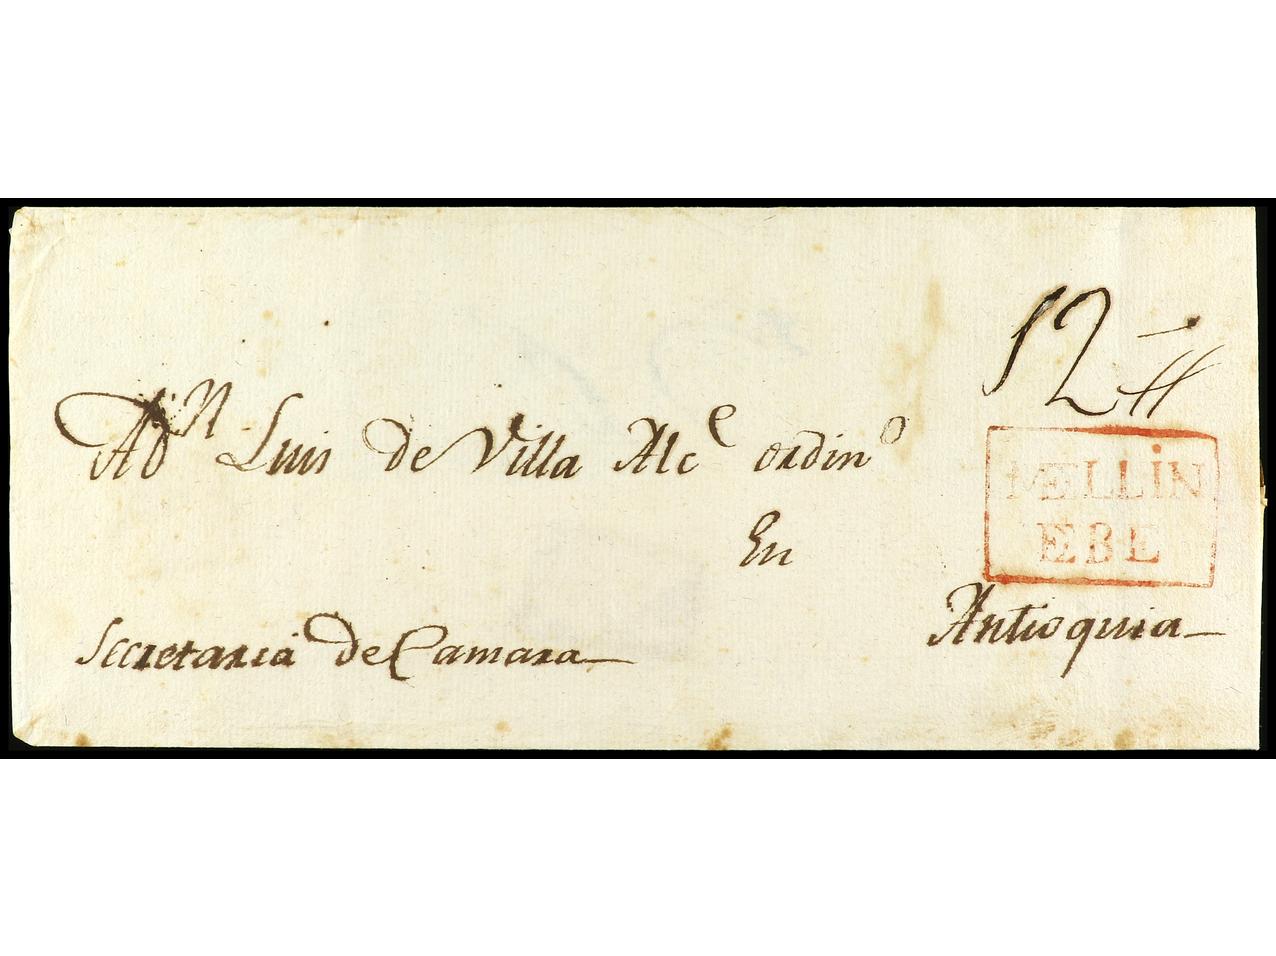 12 -//
A Dn Luis de Villa Alce ordino
MELLİN
EBE
En
Antioquia
Secretaria de Camara